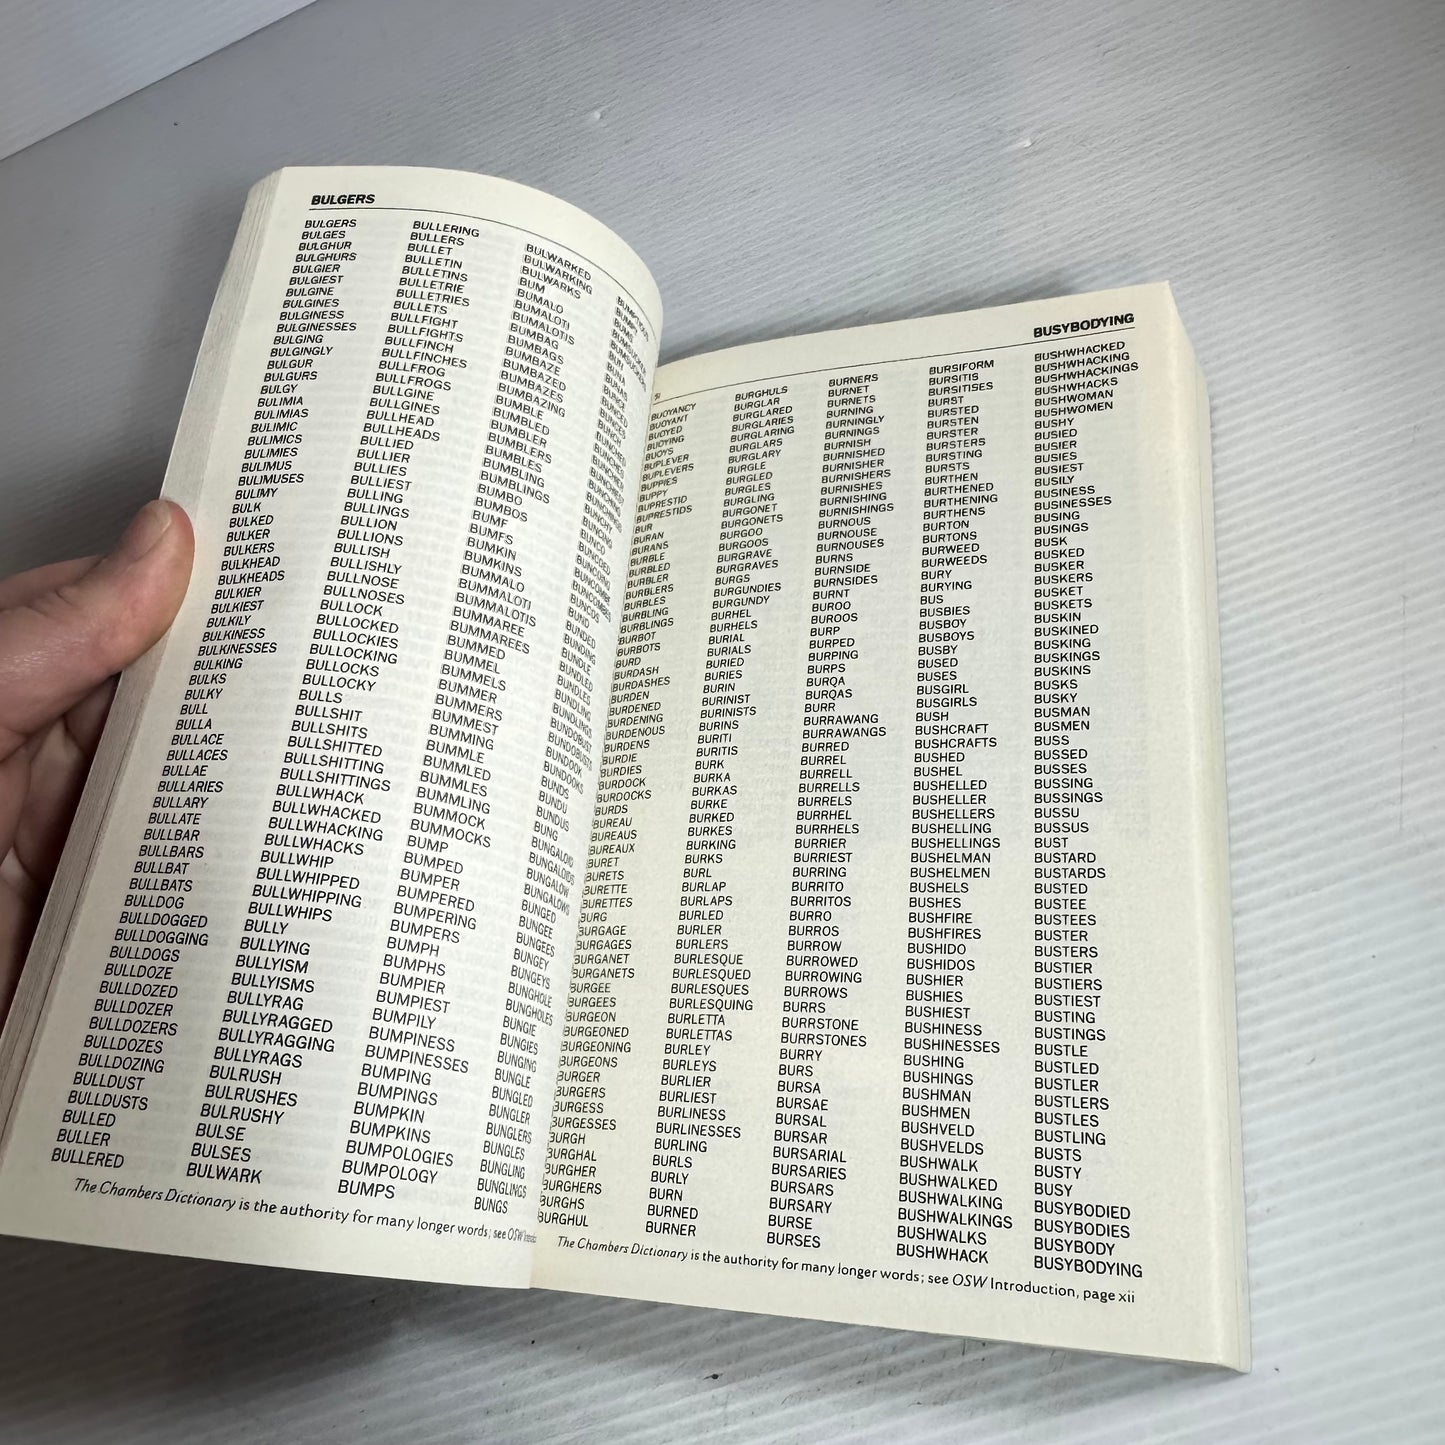 BULGERS
BULGERS
BULGES
BULGHUR
BULGHURS
BULGIER
BULGIEST
BULGINE
BULGINES
BULGINESS
BULGINESSES
BULGING
BULGINGLY
BULGUR
BULGURS
BULGY
BULIMIA
BULIMIAS
BULIMIC
BULIMICS
BULIMIES
BULIMUS
BULIMUSES
BULIMY
BULK
BULKED
BULKER
BULKERS
BULKHEAD
BULKHEADS
BULKIER
BULKIEST
BULKILY
BULKINESS
BULKINESSES
BULKING
BULKS
BULKY
BULL
BULLA
BULLACE
BULLACES
BULLAE
BULLARIES
BULLARY
BULLATE
BULLBAR
BULLBARS
BULLBAT
BULLBATS
BULLDOG
BULLDOGGED
BULLDOGGING
BULLDOGS
BULLDOZE
BULLDOZED
BULLDOZER
BULLDOZERS
BULLDOZES
BULLDOZING
BULLDUST
BULLDUSTS
BULLED
BULLER
BULLERED
BULLERING
BULLERS
BULLET
BULLETIN
BULLETINS
BULLETRIE
BULLETRIES
BULLETS
BULLFIGHT
BULLFIGHTS
BULLFINCH
BULLFINCHES
BULLFROG
BULLFROGS
BULLGINE
BULLGINES
BULLHEAD
BULLHEADS
BULLIED
BULLIER
BULLIES
BULLIEST
BULLING
BULLINGS
BULLION
BULLIONS
BULLISH
BULLISHLY
BULLNOSE
BULLNOSES
BULLOCK
BULLOCKED
BULLOCKIES
BULLOCKING
BULLOCKS
BULLOCKY
BULLS
BULLSHIT
BULLSHITS
BULLSHITTED
BULLSHITTING
BULLSHITTINGS
BULLWHACK
BULLWHACKED
BULLWHACKING
BULLWHACKS
BULLWHIP
BULLWHIPPED
BULLWHIPPING
BULLWHIPS
BULLY
BULLYING
BULLYISM
BULLYISMS
BULLYRAG
BULLYRAGGED
BULLYRAGGING
BULLYRAGS
BULRUSH
BULRUSHES
BULRUSHY
BULSE
BULSES
BULWARK
BULWARKED
BULWARKING
BULWARKS
BUM
BUMALO
BUMALOTI
BUMALOTIS
BUMBAG
BUMBAGS
BUMBAZE
BUMBAZED
BUMBAZES
BUMBAZING
BUMBLE
BUMBLED
BUMBLER
BUMBLERS
BUMBLES
BUMBLING
BUMBLINGS
BUMBO
BUMBOS
BUMF
BUMFS
BUMKIN
BUMKINS
BUMMALO
BUMMALOTI
BUMMALOTIS
BUMMAREE
BUMMAREES
BUMMED
BUMMEL
BUMMELS
BUMMER
BUMMERS
BUMMEST
BUMMING
BUMMLE
BUMMLED
BUMMLES
BUMMLING
BUMMOCK
BUMMOCKS
BUMP
BUMPED
BUMPER
BUMPERED
BUMPERING
BUMPERS
BUMPH
BUMPHS
BUMPIER
BUMPIEST
BUMPILY
BUMPINESS
BUMPINESSES
BUMPING
BUMPINGS
BUMPKIN
BUMPKINS
BUMPOLOGIES
BUMPOLOGY
BUMPS
BUMPTIOUS
BUMPY
BUMS
BUN
BUNA
BUNAS
BUNCE
BUNCED
BUNCES
BUNCH
BUNCHED
BUNCHES
BUNCHIER
BUNCHIEST
BUNCHING
BUNCHINGS
BUNCHY
BUNCING
BUNCO
BUNCOED
BUNCOING
BUNCOMBE
BUNCOMBES
BUNCOS
BUND
BUNDED
BUNDING
BUNDLE
BUNDLED
BUNDLES
BUNDLING
BUNDLINGS
BUNDOBUST
BUNDOBUSTS
BUNDOOK
BUNDOOKS
BUNDS
BUNDU
BUNDUS
BUNG
BUNGALOID
BUNGALOIDS
BUNGALOW
BUNGALOWS
BUNGED
BUNGEE
BUNGEES
BUNGEY
BUNGEYS
BUNGHOLE
BUNGHOLES
BUNGIE
BUNGIES
BUNGING
BUNGLE
BUNGLED
BUNGLER
BUNGLERS
BUNGLES
BUNGLING
BUNGLINGS
BUNGS
The Chambers Dictionary is the authority for many longer words; see OSW
51
BUSYBODYING
BUOYANCY
BUOYANT
BUOYED
BUOYING
BUOYS
BUPLEVER
BUPLEVERS
BUPPIES
BUPPY
BUPRESTID
BUPRESTIDS
BUR
BURAN
BURANS
BURBLE
BURBLED
BURBLER
BURBLERS
BURBLES
BURBLING
BURBLINGS
BURBOT
BURBOTS
BURD
BURDASH
BURDASHES
BURDEN
BURDENED
BURDENING
BURDENOUS
BURDENS
BURDIE
BURDIES
BURDOCK
BURDOCKS
BURDS
BUREAU
BUREAUS
BUREAUX
BURET
BURETS
BURETTE
BURETTES
BURG
BURGAGE
BURGAGES
BURGANET
BURGANETS
BURGEE
BURGEES
BURGEON
BURGEONED
BURGEONING
BURGEONS
BURGER
BURGERS
BURGESS
BURGESSES
BURGH
BURGHAL
BURGHER
BURGHERS
BURGHS
BURGHUL
BURGHULS
BURGLAR
BURGLARED
BURGLARIES
BURGLARING
BURGLARS
BURGLARY
BURGLE
BURGLED
BURGLES
BURGLING
BURGONET
BURGONETS
BURGOO
BURGOOS
BURGRAVE
BURGRAVES
BURGS
BURGUNDIES
BURGUNDY
BURHEL
BURHELS
BURIAL
BURIALS
BURIED
BURIES
BURIN
BURINIST
BURINISTS
BURINS
BURITI
BURITIS
BURK
BURKA
BURKAS
BURKE
BURKED
BURKES
BURKING
BURKS
BURL
BURLAP
BURLAPS
BURLED
BURLER
BURLERS
BURLESQUE
BURLESQUED
BURLESQUES
BURLESQUING
BURLETTA
BURLETTAS
BURLEY
BURLEYS
BURLIER
BURLIEST
BURLINESS
BURLINESSES
BURLING
BURLS
BURLY
BURN
BURNED
BURNER
BURNERS
BURNET
BURNETS
BURNING
BURNINGLY
BURNINGS
BURNISH
BURNISHED
BURNISHER
BURNISHERS
BURNISHES
BURNISHING
BURNISHINGS
BURNOUS
BURNOUSE
BURNOUSES
BURNS
BURNSIDE
BURNSIDES
BURNT
BUROO
BUROOS
BURP
BURPED
BURPING
BURPS
BURQA
BURQAS
BURR
BURRAWANG
BURRAWANGS
BURRED
BURREL
BURRELL
BURRELLS
BURRELS
BURRHEL
BURRHELS
BURRIER
BURRIEST
BURRING
BURRITO
BURRITOS
BURRO
BURROS
BURROW
BURROWED
BURROWING
BURROWS
BURRS
BURRSTONE
BURRSTONES
BURRY
BURS
BURSA
BURSAE
BURSAL
BURSAR
BURSARIAL
BURSARIES
BURSARS
BURSARY
BURSE
BURSES
BURSIFORM
BURSITIS
BURSITISES
BURST
BURSTED
BURSTEN
BURSTER
BURSTERS
BURSTING
BURSTS
BURTHEN
BURTHENED
BURTHENING
BURTHENS
BURTON
BURTONS
BURWEED
BURWEEDS
BURY
BURYING
BUS
BUSBIES
BUSBOY
BUSBOYS
BUSBY
BUSED
BUSES
BUSGIRL
BUSGIRLS
BUSH
BUSHCRAFT
BUSHCRAFTS
BUSHED
BUSHEL
BUSHELLED
BUSHELLER
BUSHELLERS
BUSHELLING
BUSHELLINGS
BUSHELMAN
BUSHELMEN
BUSHELS
BUSHES
BUSHFIRE
BUSHFIRES
BUSHIDO
BUSHIDOS
BUSHIER
BUSHIES
BUSHIEST
BUSHINESS
BUSHINESSES
BUSHING
BUSHINGS
BUSHMAN
BUSHMEN
BUSHVELD
BUSHVELDS
BUSHWALK
BUSHWALKED
BUSHWALKING
BUSHWALKINGS
BUSHWALKS
BUSHWHACK
BUSHWHACKED
BUSHWHACKING
BUSHWHACKINGS
BUSHWHACKS
BUSHWOMAN
BUSHWOMEN
BUSHY
BUSIED
BUSIER
BUSIES
BUSIEST
BUSILY
BUSINESS
BUSINESSES
BUSING
BUSINGS
BUSK
BUSKED
BUSKER
BUSKERS
BUSKET
BUSKETS
BUSKIN
BUSKINED
BUSKING
BUSKINGS
BUSKINS
BUSKS
BUSKY
BUSMAN
BUSMEN
BUSS
BUSSED
BUSSES
BUSSING
BUSSINGS
BUSSU
BUSSUS
BUST
BUSTARD
BUSTARDS
BUSTED
BUSTEE
BUSTEES
BUSTER
BUSTERS
BUSTIER
BUSTIERS
BUSTIEST
BUSTING
BUSTINGS
BUSTLE
BUSTLED
BUSTLER
BUSTLERS
BUSTLES
BUSTLING
BUSTS
BUSTY
BUSY
BUSYBODIED
BUSYBODIES
BUSYBODY
BUSYBODYING
The Chambers Dictionary is the authority for many longer words; see OSW Introduction, page xii